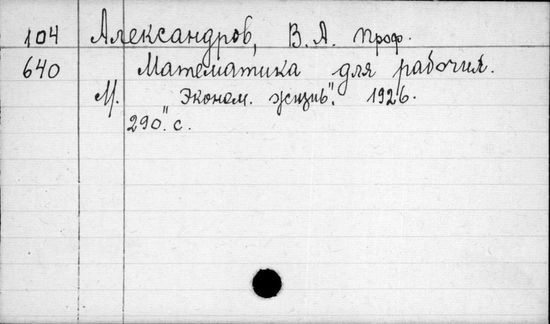 104 Александров, В. А. Проф.
640 Математика для рабочих.
М. "Эконом. жизнь". 1926.
290 с.